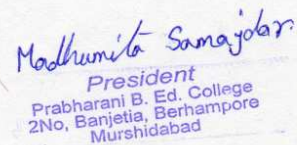 Madhumita Samajdar.
President
Prabharani B. Ed. College
2No, Banjetia, Berhampore
Murshidabad